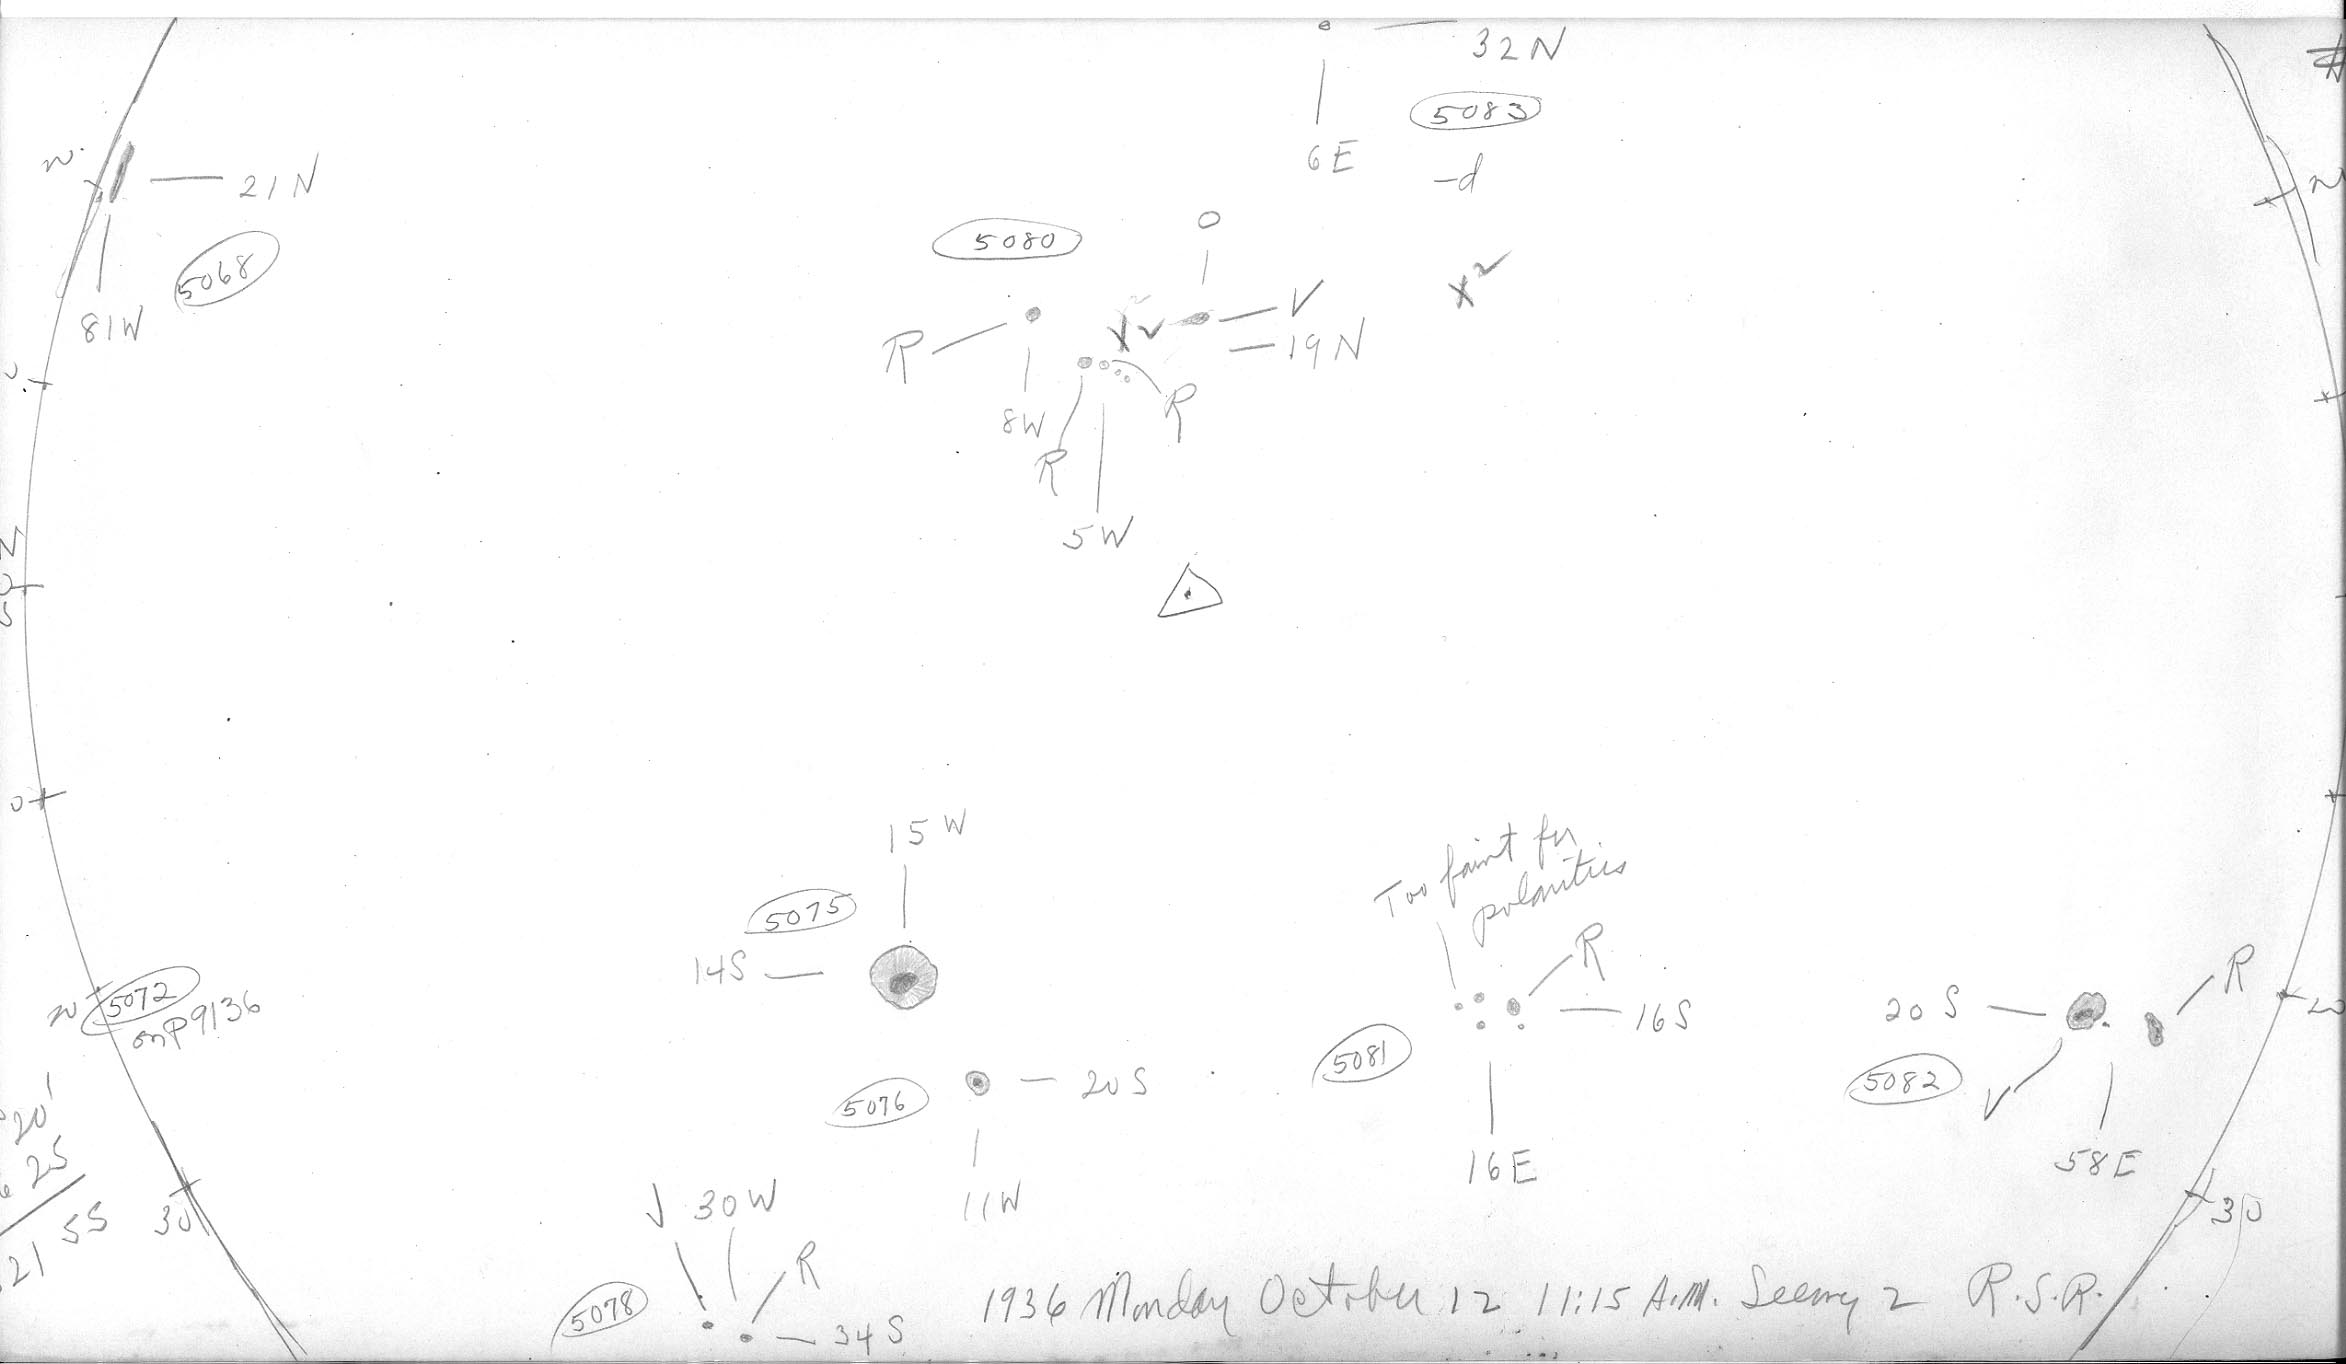 32N
5083
6E
-d
21N
5068
81W
5080
0
R
V
19N
8W
R
R
5W
15W
5075
14S
5076
20S
11W
Too faint for
polarities
R
16S
5081
16E
20S
R
5082
V
58E
5072
on P9136
20'
25
21 55
30
30
V 30W
R
5078
34S
1936 Monday October 12 11:15 A.M. Seeing 2 R.S.R.